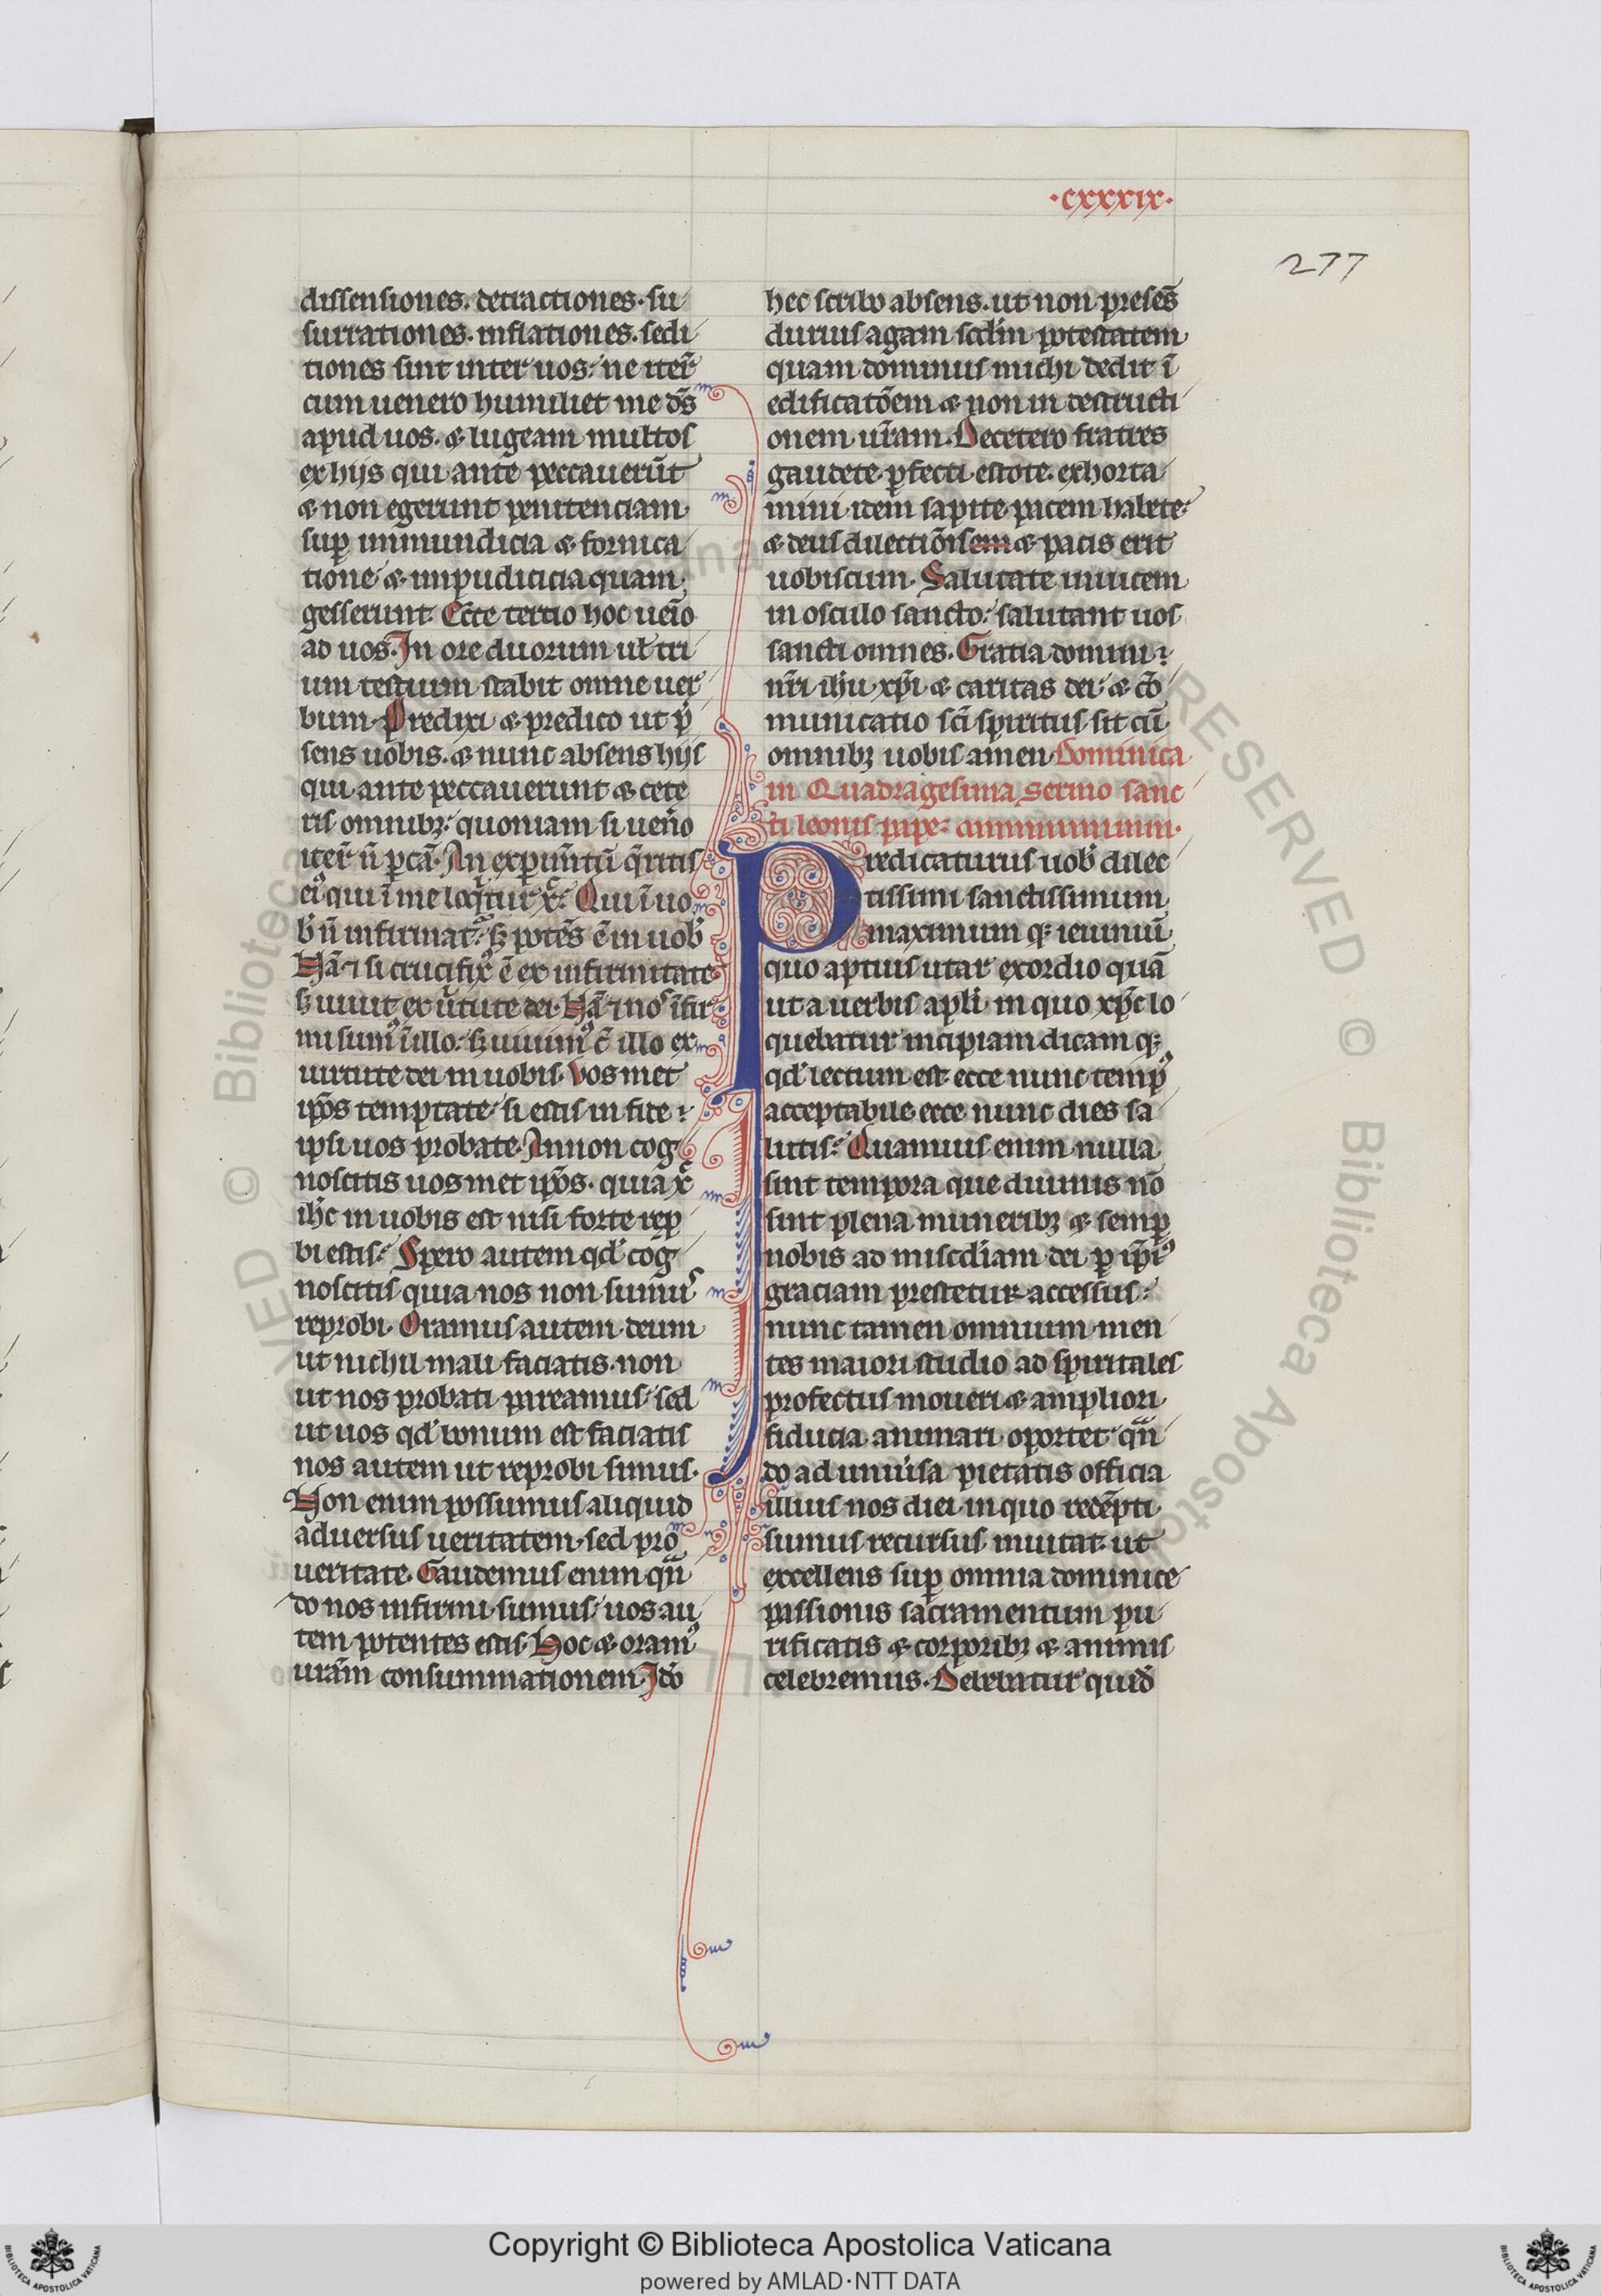 ·cxxxix·
277
dissensiones. detractiones. su
surrationes. inflationes. sedi
tiones sint inter uos: ne iteṝ
cum uenero humiliet me ds̄
apud uos. & lugeam multos
ex hijs qui ante peccauerūt
& non egerunt penitenciam
suꝑ immundicia & fornica
tione & impudicicia quam
gesserunt. Ecce tertio hoc uēio
ad uos. In ore duorum ul̄ tri
um testium stabit omne uer
bum. Predixi & predico ut p̄
sens uobis. & nunc absens hijs
qui ante peccauerunt & cete
ris omnibꝫ: quoniam si uen̄o
iteṝ n̄ ꝑcā. An exꝑim̄tū q̄ritis
ei᷒ qui ī me loq̄tur xc̄. Qui ī uo
b̄ n̄ infirmat᷒. sꝫ potēs ē in uob̄
Nā ⁊ si crucifix᷒ ē ex infirmitate
sꝫ uiuit ex ūtute dei. Nā ⁊ nos īfir
mi sum᷒ ī illo: sꝫ uiuim᷒ c̄ illo ex
uirtute dei in uobis. Vos met
ip̄os temptate si estis in fide:
ipsi uos probate. An non cog
noscitis uos met ip̄os. quia xc̄
ih̄c in uobis est nisi forte rep̱
bi estis. Spero autem qd̄ cog
noscitis quia nos non sumus
reprobi. Oramus autem deum
ut nichil mali faciatis. non
ut nos probati pareamus. sed
ut uos qd̄ bonum est faciatis
nos autem ut reprobi simus.
Non enim possumus aliquid
aduersus ueritatem. sed pro
ueritate. Gaudemus enim qn̄
do nos infirmi sumus. uos au
tem potentes estis. Hoc & oram᷒
uram̄ consummationem. Idō
hec scribo absens. ut non presēs
durius agam scdm̄ potestatem
quam dominus michi dedit ī
edificatōem & non in destructi
onem ur̄am. De cetero fratres
gaudete. ꝑfecti estote. exhorta
mini. idem sapite. pacem habete.
& deus dilectiōisem & pacis erit
uobiscum. Salutate inuicem
in osculo sancto: salutant uos
sancti omnes. Gratia domini
nr̄i ih̄u xp̄i & caritas dei. & cō
municatio sc̄i spiritus sit cū
omnibꝫ uobis amen. Dominica
in Quadragesima sermo sanc
ti leonis pape.
Predicaturus uob̄ dilec
tissimi sanctissimum
maximum qꝫ ieiuniū
quo aptius utar exordio quā
ut a uerbis apl̄i in quo xp̄c lo
quebatur incipiam dicam qꝫ
qd̄ lectum est. ecce nunc temp᷒
acceptabile ecce nunc dies sa
lutis. Quamuis enim nulla
sint tempora que diuinis nō
sint plena muneribꝫ & semꝑ
nobis ad miscd̄iam dei ꝑ ip̄i᷒
graciam prestetur accessus:
nunc tamen omnium men
tes maiori studio ad spiritales
profectus moueri & ampliori
fiducia animari oportet qn̄
do ad uniūsa pietatis officia
illius nos diei in quo redēpti
sumus recursus inuitat. ut
excellens suꝑ omnia dominice
passionis sacramentum pu
rificatis & corporibꝫ & animis
celebremus. Debebatur quid̄
Copyright © Biblioteca Apostolica Vaticana
powered by AMLAD·NTT DATA